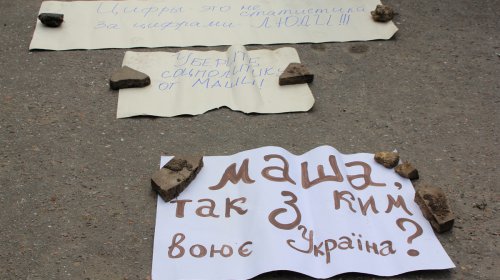 Цифры - это не статистика
за цифрами - ЛЮДИ!!!
УБЕРИТЕ
СОЦПОЛИТИКУ
ОТ МАШИ!
маша,
так з ким
воює Україна?